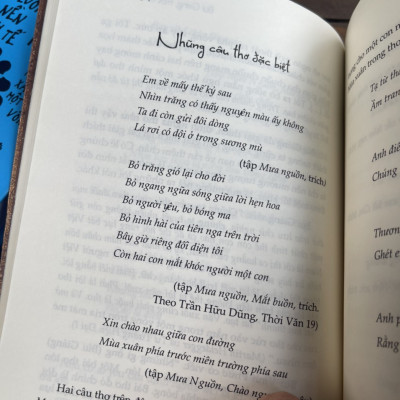 Những câu thơ đặc biệt
Em về mấy thế kỷ sau
Nhìn trăng có thấy nguyên màu ấy không
Ta đi còn gửi đôi dòng
Lá rơi có dội ở trong sương mù
(tập Mưa nguồn, trích)
Bỏ trăng gió lại cho đời
Bỏ ngang ngửa sóng giữa lời hẹn hoa
Bỏ người yêu, bỏ bóng ma
Bỏ hình hài của tiên nga trên trời
Bây giờ riêng đối diện tôi
Còn hai con mắt khóc người một con
(tập Mưa nguồn, Mắt buồn, trích.
Theo Trần Hữu Dũng, Thời Văn 19)
Xin chào nhau giữa con đường
Mùa xuân phía trước miên trường phía sau
(tập Mưa Nguồn, Chào
Hai câu thơ trên
cho một con
xuân trong thơ
Tệ từ
Ấm
Anh
Chúng
Thương
Ghét
Anh
Rằng